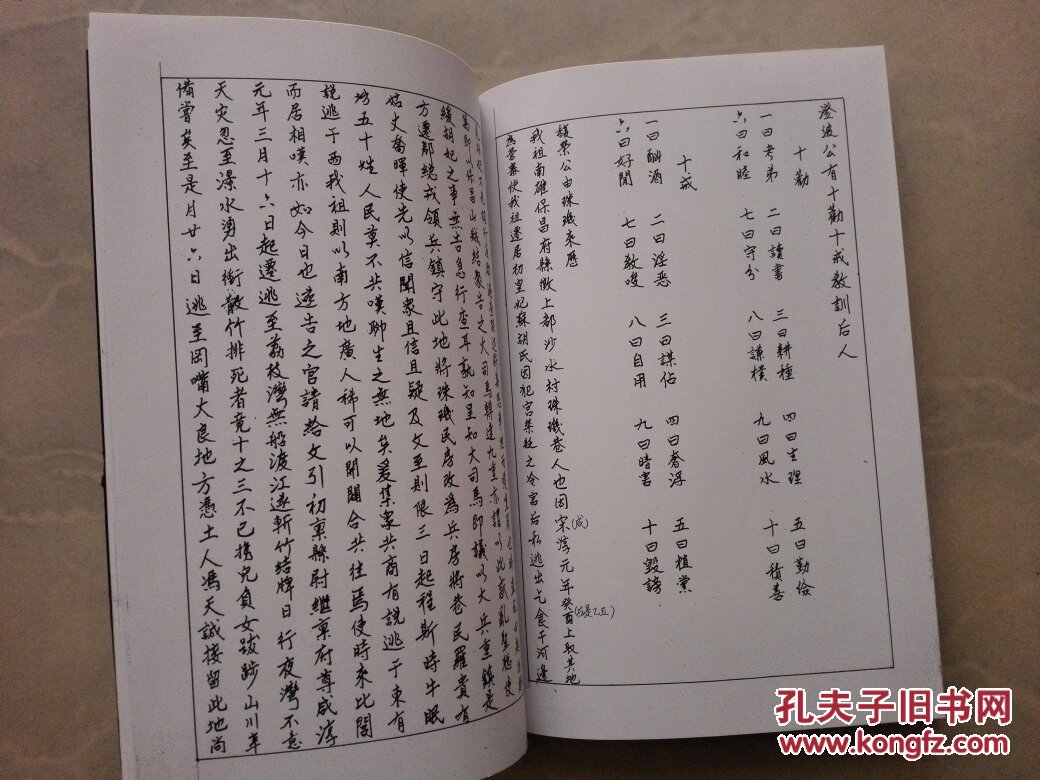 澄波公有十勤十戒教訓后人
十勤
一曰孝弟 二曰讀書 三曰耕種 四曰生理 五曰勤儉
六曰和睦 七曰守分 八曰謙樸 九曰風水 十曰積善
十戒
一曰酗酒 二曰淫惡 三曰謀佔 四曰奢浮 五曰植黨
六曰好閒 七曰教唆 八曰自用 九曰暗害 十曰毀謗
公由珠璣來歷
我祖南雄保昌府縣徽上部沙水村珠璣巷人也因宋(咸)淳元年癸酉(应是乙丑)上取其地
為營寨使我祖遷居初皇妃蘇胡氏因犯宮禁放之冷宮后私逃出乞食于河邊
萬即以保昌山賊結眾告之大司馬轉達九重亦謹以此賊亂聖聽使
緩胡妃之事無告急行查耳孰知呈知大司馬即議以大兵重鎮是
方遷鄰總戎領兵鎮守此地將珠璣民房改為兵房將巷民羅貴有
姑丈喬暉使先以信聞家且信且疑及文至則限三日起程斯時牛眠
坊五十姓人民莫不共嘆聊生之無地矣爰集眾共商有說逃于東有
說逃于西我祖則以南方地廣人稀可以開闢合共往焉使時來比閭
而居相嘆亦如今日也遂告之官請給文引初稟縣尉繼稟府尊咸淳
元年三月十六日起遷逃至荔枝灣無船渡江遂斬竹结牌日行夜灣不意
天灾忽至瀑水湧出衝散竹排死者竟十之三不已携兒負女跋踄山川辛
備嘗矣至是月廿六日逃至岡嘴大良地方憑土人馮天誠接留此地尚
孔夫子旧书网
www.kongfz.com